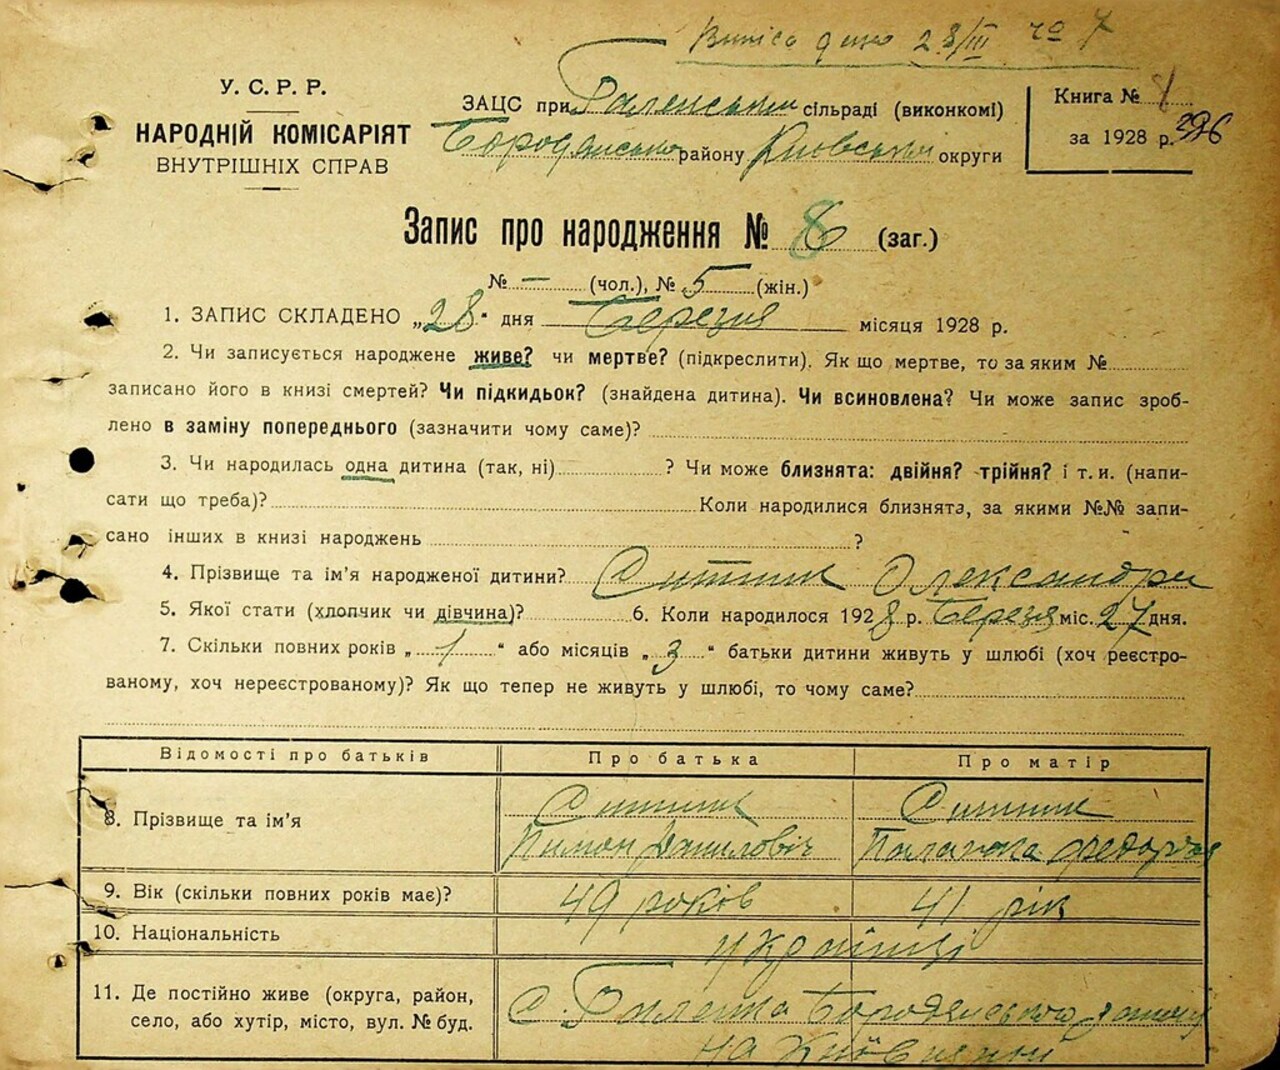 Виписа дано 28/III
У. С. Р. Р.
НАРОДНІЙ КОМІСАРІЯТ
ВНУТРІШНІХ СПРАВ
ЗАЦС при сільраді (виконкомі)
району Київської округи
Книга №
за 1928 р. 396
Запис про народження № 6 (заг.)
№ — (чол.), № 5 (жін.)
1. ЗАПИС СКЛАДЕНО „28“ дня Березня місяця 1928 р.
2. Чи записується народжене живе? чи мертве? (підкреслити). Як що мертве, то за яким №
записано його в книзі смертей? Чи підкидьок? (знайдена дитина). Чи всиновлена? Чи може запис зроб-
лено в заміну попереднього (зазначити чому саме)?
3. Чи народилась одна дитина (так, ні) ? Чи може близнята: двійня? трійня? і т. и. (напи-
сати що треба)? Коли народилися близнята, за якими №№ запи-
сано інших в книзі народжень ?
4. Прізвище та ім'я народженої дитини? Ситник Олександра
5. Якої стати (хлопчик чи дівчина)? 6. Коли народилося 1928 р. Березня міс. 27 дня.
7. Скільки повних років „1“ або місяців „3“ батьки дитини живуть у шлюбі (хоч реєстро-
ваному, хоч нереєстрованому)? Як що тепер не живуть у шлюбі, то чому саме?
Відомості про батьків Про батька Про матір
8. Прізвище та ім'я Ситник Ситник
Пимон Данилович
9. Вік (скільки повних років має)? 49 років 41 рік
10. Національність Українці
11. Де постійно живе (округа, район,
село, або хутір, місто, вул. № буд.
с. Бородянського району
на Київщині